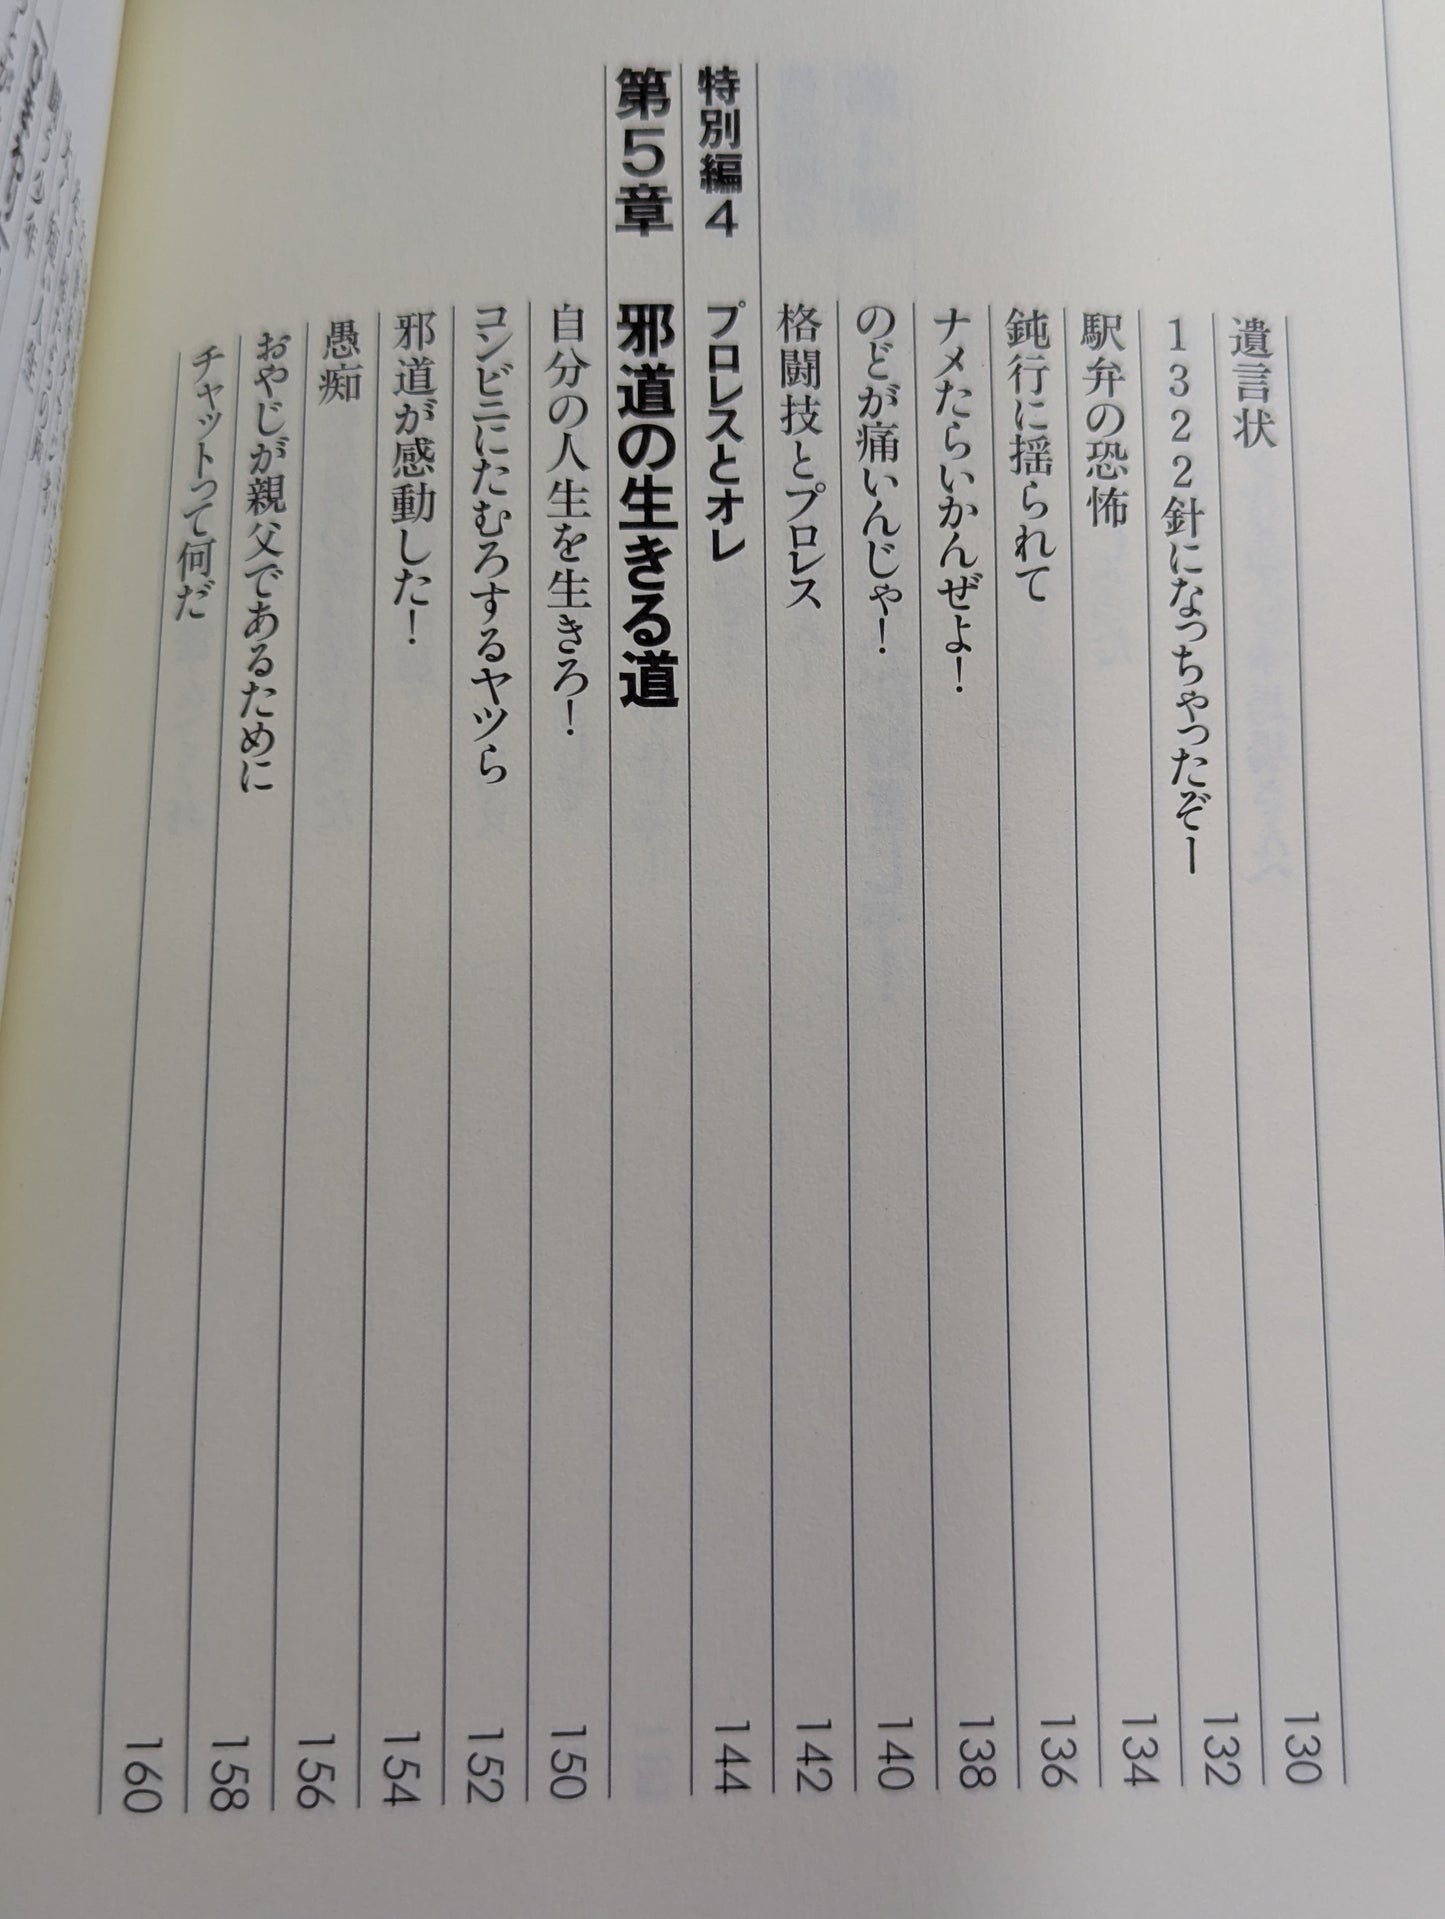 遺言状 130
1322針になっちゃったぞー 132
駅弁の恐怖 134
鈍行に揺られて 136
ナメたらいかんぜよ! 138
のどが痛いんじゃ! 140
格闘技とプロレス 142
特別編4 プロレスとオレ 144
第5章 邪道の生きる道
自分の人生を生きろ! 150
コンビニにたむろするヤツら 152
邪道が感動した! 154
愚痴 156
おやじが親父であるために 158
チャットって何だ 160